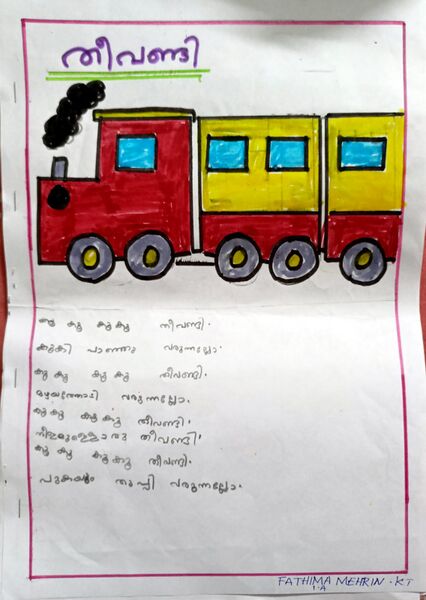 തീവണ്ടി
കൂ കൂ കൂകൂ തീവണ്ടി.
കൂകി പാഞ്ഞു വരുന്നല്ലോ.
കൂകൂ കൂകൂ തീവണ്ടി.
വരുന്നല്ലോ.
കൂകൂ കൂകൂ തീവണ്ടി.
നീളമുള്ളൊരു തീവണ്ടി
കൂ കൂ കൂകൂ തീവണ്ടി.
പുകയും തുപ്പി വരുന്നല്ലോ.
FATHIMA MEHRIN . KT
1.A